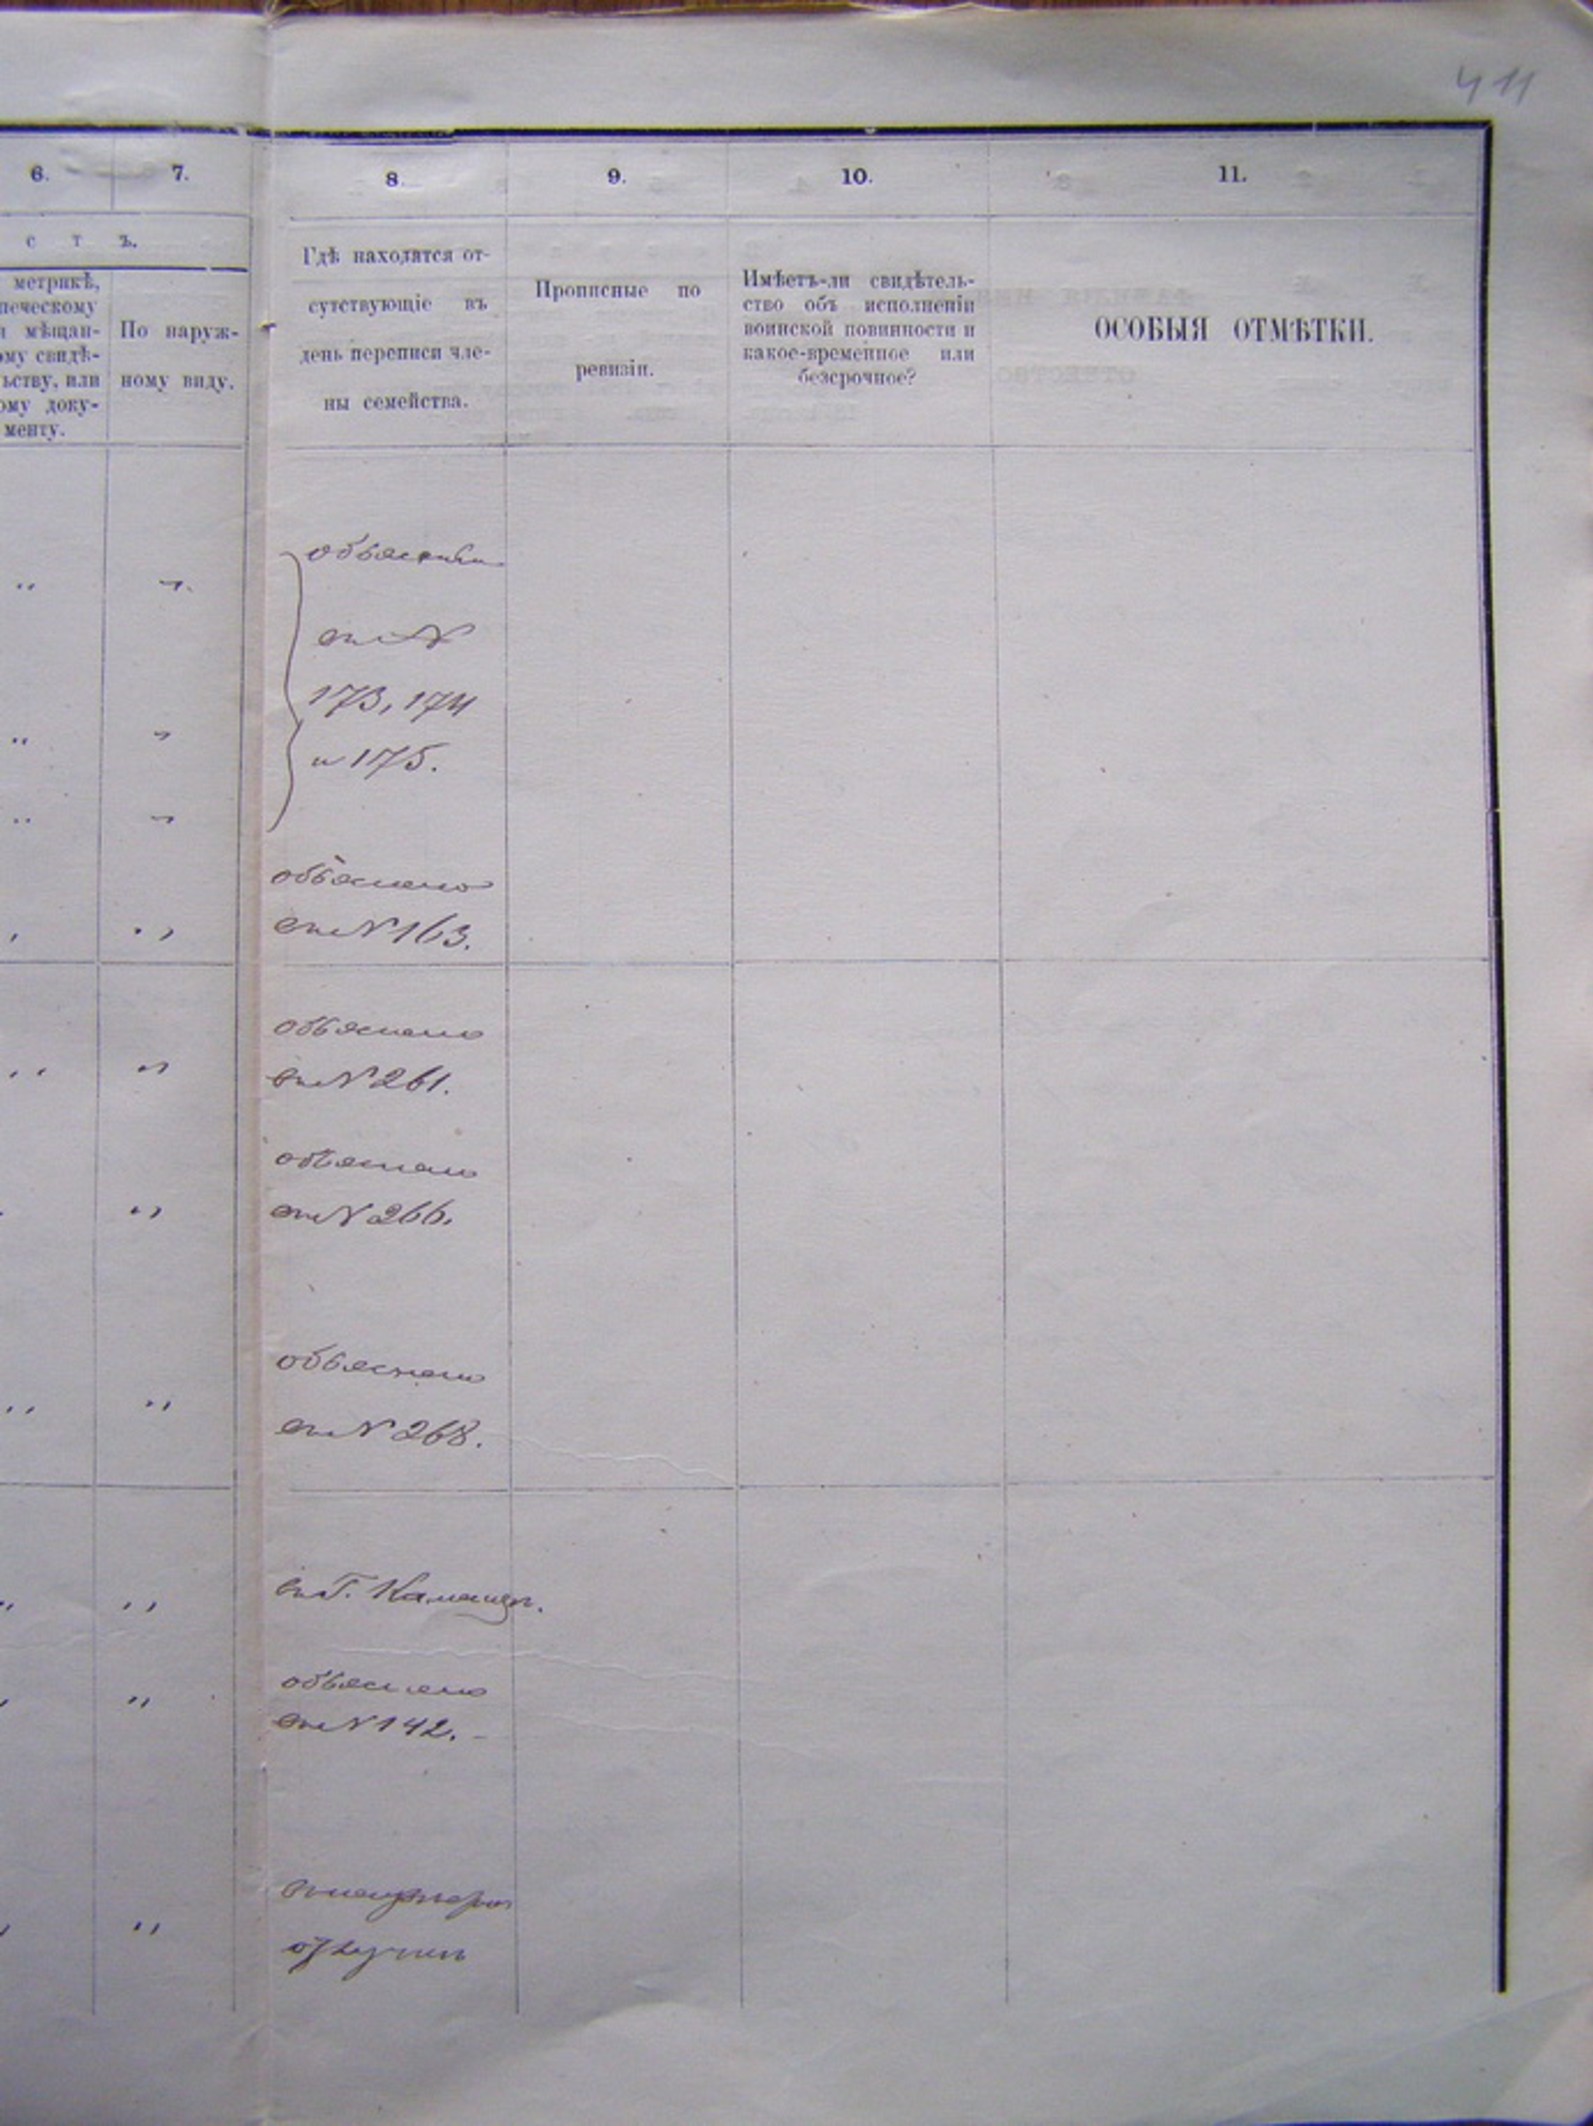 411
6. 7. 8. 9. 10. 11.
с т ъ.
метрикѣ,
печескому
и мѣщан-
ому свидѣ-
ьству, или
ому доку-
менту.
По наруж-
ному виду.
Гдѣ находятся от-
сутствующіе въ
день переписи чле-
ны семейства.
Прописные по
ревизіи.
Имѣетъ-ли свидѣтель-
ство объ исполненіи
воинской повинности и
какое-временное или
безсрочное?
ОСОБЫЯ ОТМѢТКИ.
въ №
173, 174
и 175.
объяснено
въ № 163.
объяснено
въ № 261.
объяснено
въ № 266.
объяснено
въ № 268.
въ Г. Каменцѣ.
объяснено
въ № 142. -